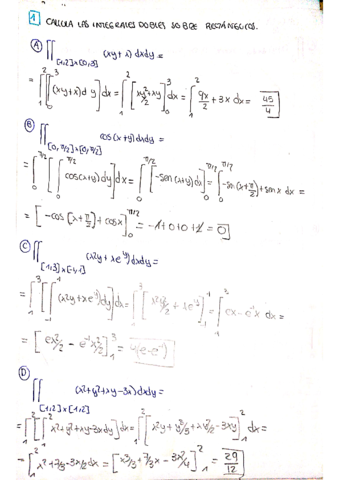 1 CALCULA LAS INTEGRALES DOBLES SOBRE RECTÁNGULOS.
A) ∬[1,2]x[0,3] (xy+x) dxdy =
= ∫₁² [∫₀³ (xy+x) dy] dx = ∫₁² [xy²/2 + xy]₀³ dx = ∫₁² 9x/2 + 3x dx = 45/4
B) ∬[0,π/2]x[0,π/2] cos(x+y) dxdy =
= ∫₀^π/2 [∫₀^π/2 cos(x+y) dy] dx = ∫₀^π/2 [-sen(x+y) dx]₀^π/2 = ∫₀^π/2 -sen(x+π/2) + sen x dx =
= [-cos(x+π/2) + cos x]₀^π/2 = -1+0+0+1 = 0
C) ∬[1,3]x[-1,1] (x²y + xe^y) dxdy =
= ∫₁³ [∫₋₁¹ (x²y + xe^y) dy] dx = ∫ [x²y²/2 + xe^y]₋₁¹ = ∫₁³ ex - e⁻¹x dx =
= [ex²/2 - e⁻¹x²/2]₁³ = 4(e-e⁻¹)
D) ∬[1,2]x[1,2] (x²+y²+xy-3x) dxdy =
= ∫₁² [∫₁² x²+y²+xy-3x dy] dx = ∫₁² [x²y + y³/3 + xy²/2 - 3xy]₁² dx =
= ∫₁² x² + 7/3 - 3x/2 dx = [x³/3 + 7/3x - 3x²/4]₁² = 29/12